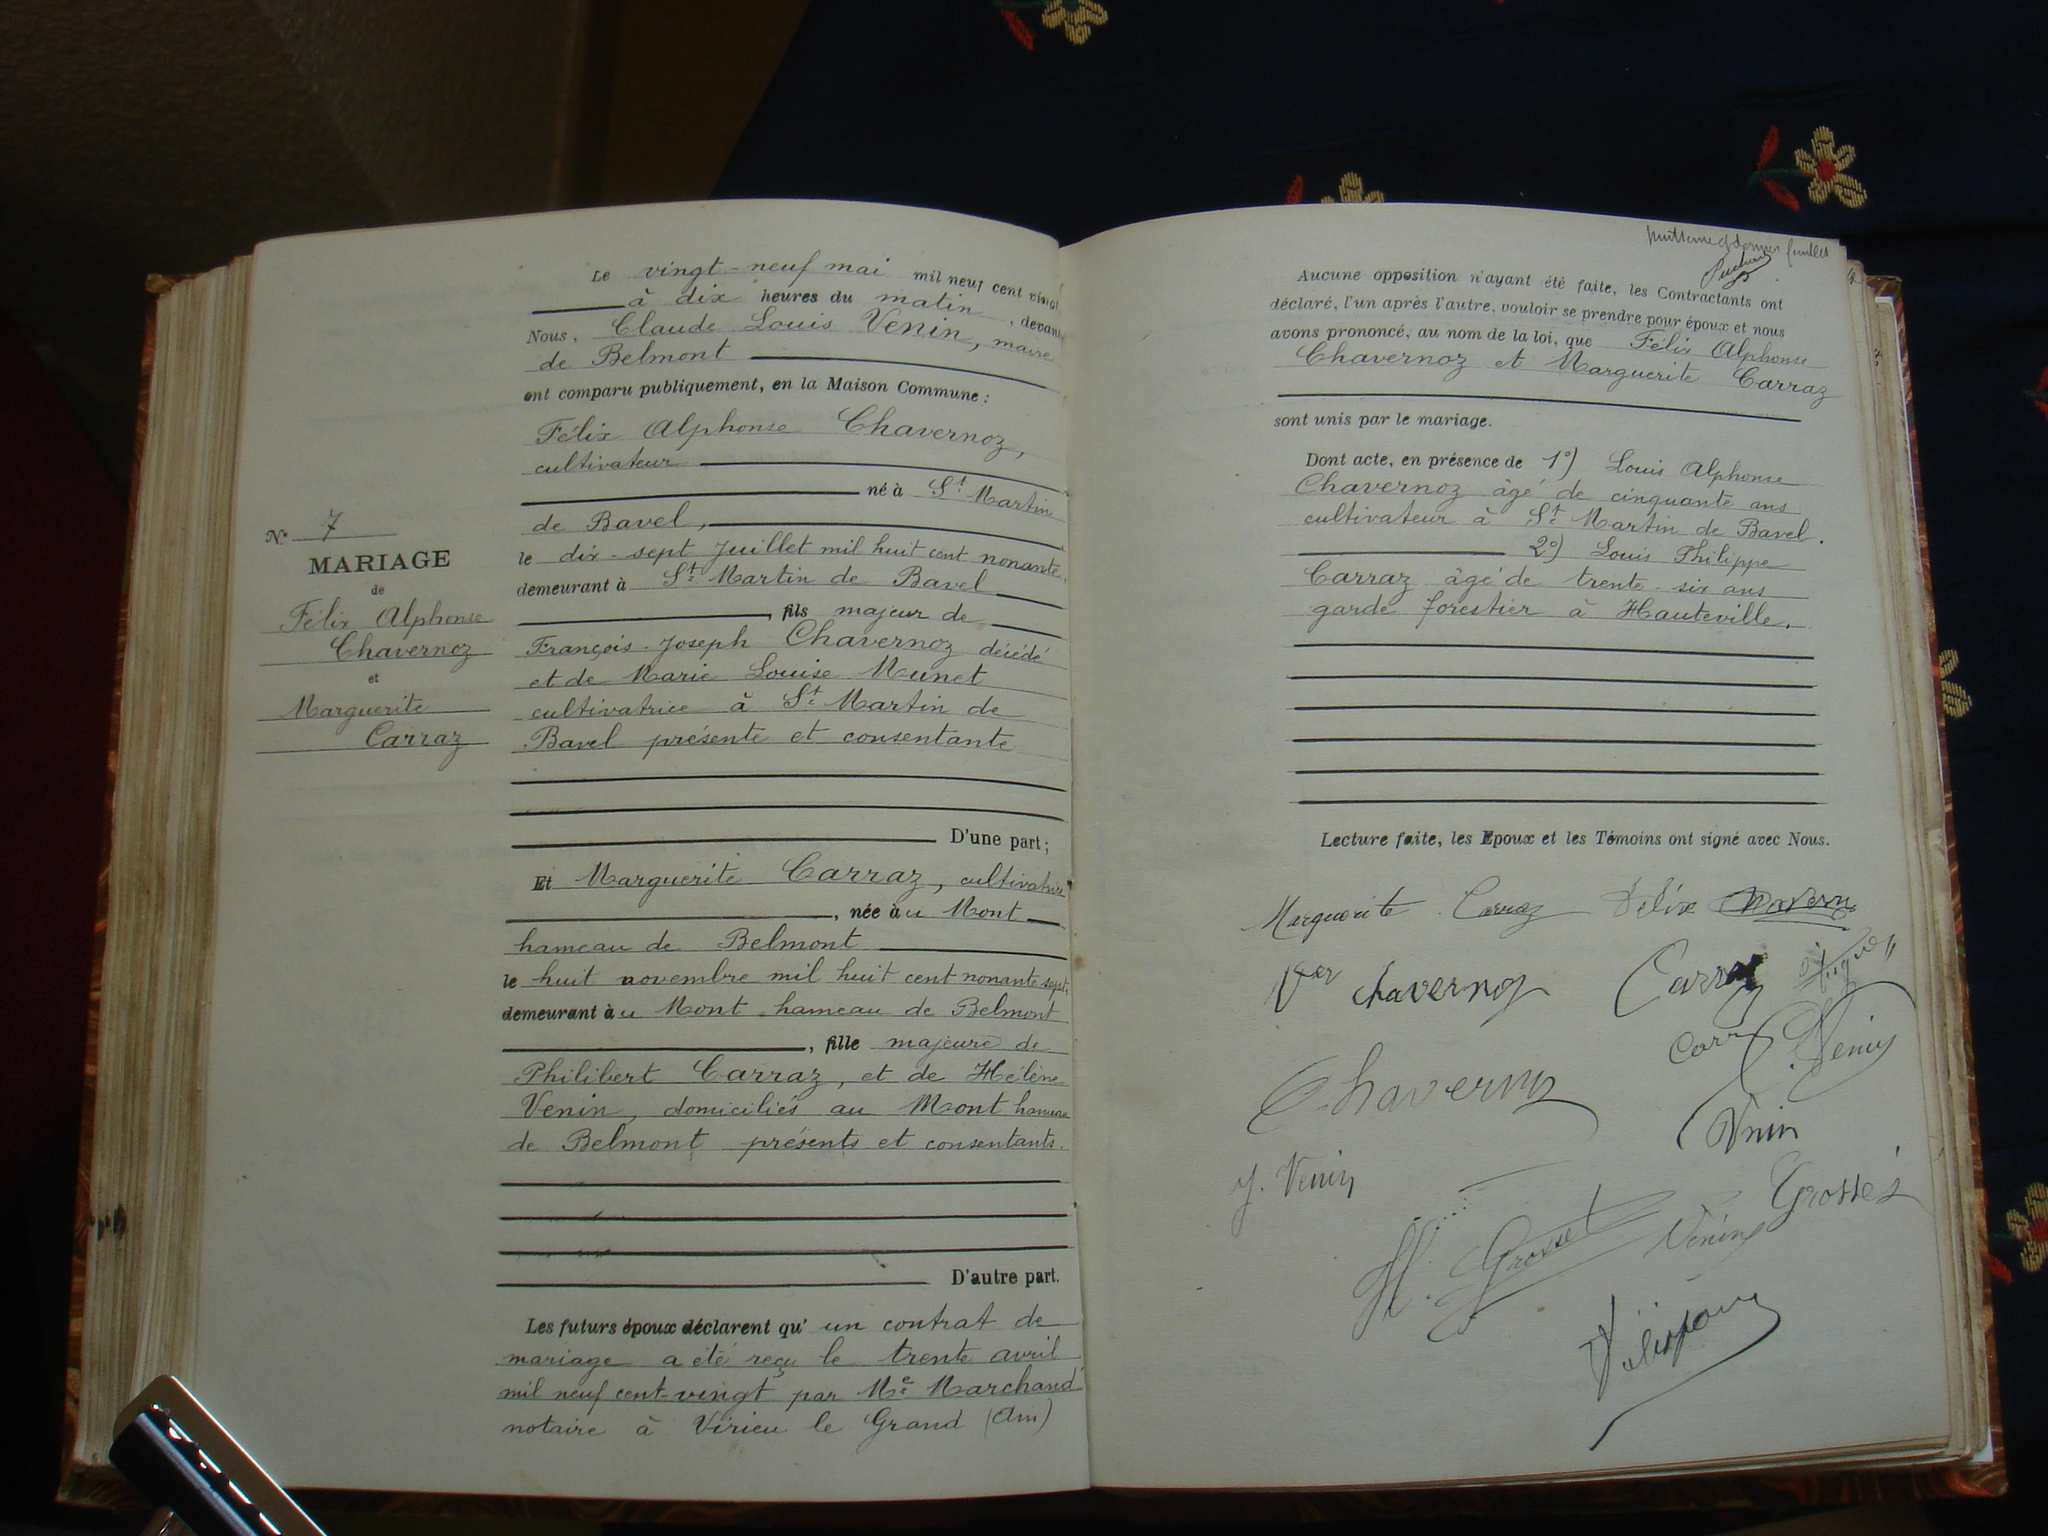 Le vingt-neuf mai mil neuf cent vingt
à dix heures du matin, devant
Nous, Claude Louis Venin, maire
de Belmont
ont comparu publiquement, en la Maison Commune :
Félix Alphonse Chavernoz,
cultivateur
né à St Martin
de Bavel,
le dix-sept Juillet mil huit cent nonante,
demeurant à St Martin de Bavel
, fils majeur de
François-Joseph Chavernoz décédé
et de Marie Louise Munet
cultivatrice à St Martin de
Bavel présente et consentante
D'une part ;
Et Marguerite Carraz, cultivatrice
, née à u Mont
hameau de Belmont
le huit novembre mil huit cent nonante sept,
demeurant à u Mont hameau de Belmont
, fille majeure de
Philibert Carraz, et de Hélène
Venin, domiciliés au Mont hameau
de Belmont présents et consentants.
D'autre part.
Les futurs époux déclarent qu' un contrat de
mariage a été reçu le trente avril
mil neuf cent-vingt par Me Marchand
notaire à Virieu le Grand (Ain)
N° 7
MARIAGE
de
Félix Alphonse
Chavernoz
et
Marguerite
Carraz
feuillet
Aucune opposition n'ayant été faite, les Contractants ont
déclaré, l'un après l'autre, vouloir se prendre pour époux et nous
avons prononcé, au nom de la loi, que Félix Alphonse
Chavernoz et Marguerite Carraz
sont unis par le mariage.
Dont acte, en présence de 1°) Louis Alphonse
Chavernoz âgé de cinquante ans
cultivateur à St Martin de Bavel.
2°) Louis Philippe
Carraz âgé de trente-six ans
garde forestier à Hauteville.
Lecture faite, les Epoux et les Témoins ont signé avec Nous.
Marguerite Carraz Félix Chavernoz
Chavernoz Carraz
Carraz
Chavernoz
Venin
J. Venin
Grosset
H. Grosset Venin